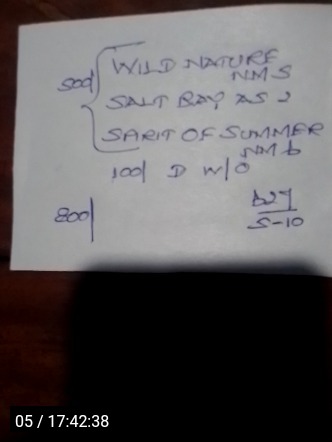 500/ WILD NATURE
NMS
SALT BAY AS 2
SPARIT OF SUMMER
NM 6
100/ D W/O
800/
627
5-10
05 / 17:42:38